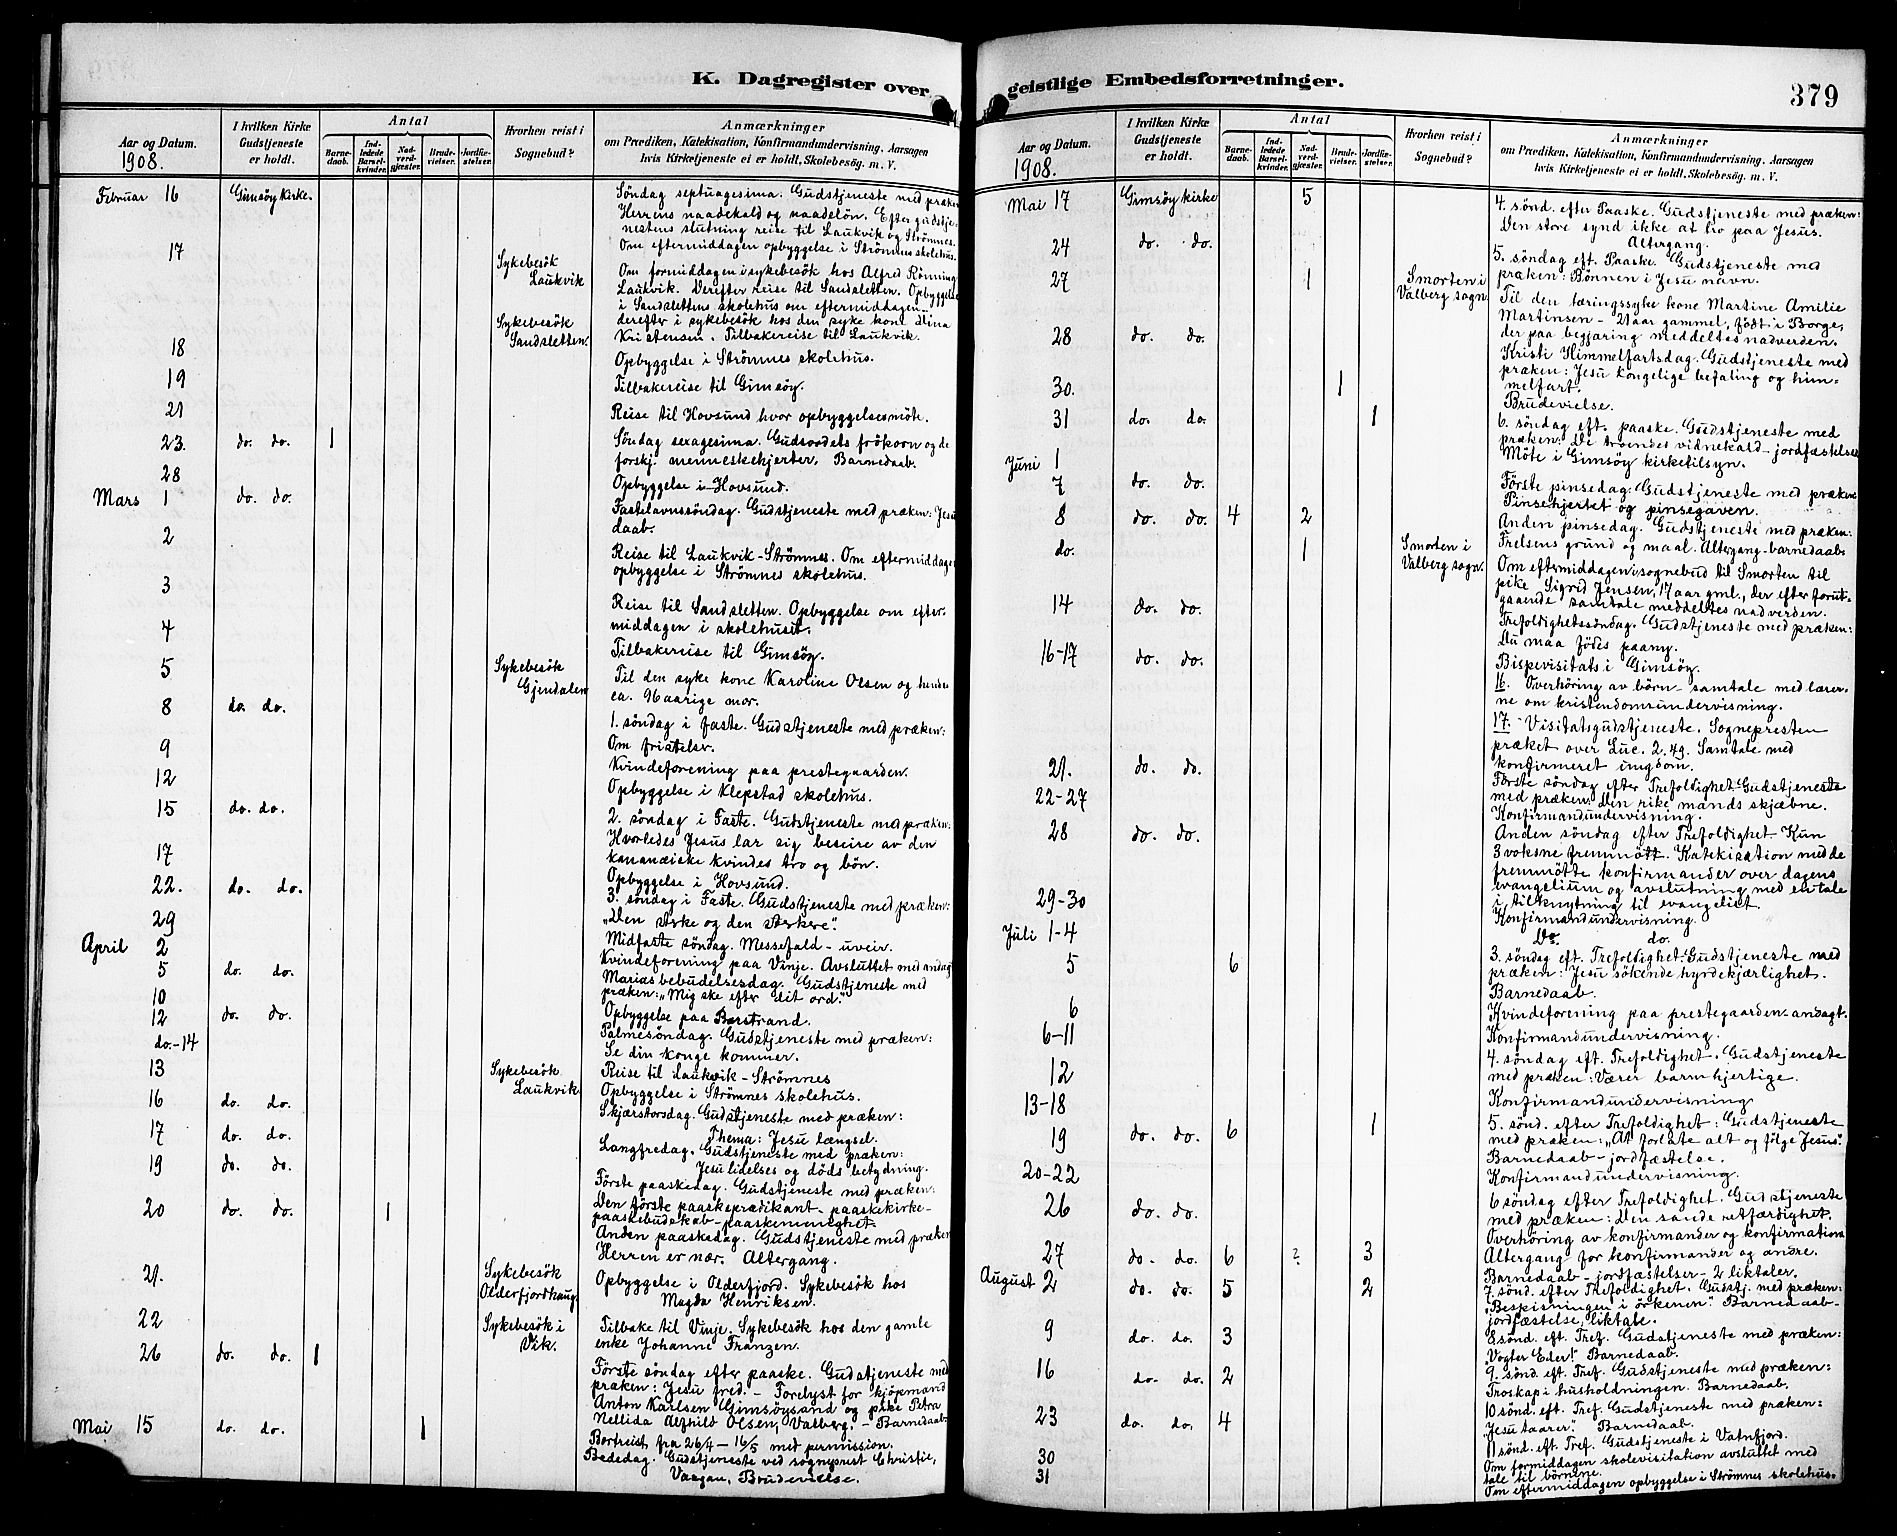 K. Dagregister over
Aar og Datum.
1908.
I hvilken Kirke
Gudstjeneste
er holdt.
Antal
Barne-
daab.
Ind-
ledede
Barsel-
kvinder.
Nad-
verd-
gjæster.
Brude-
vielser.
Jordfæ-
stelser.
Hvorhen reist i
Sognebud?
Anmærkninger
om Prædiken, Katekisation, Konfirmandundervisning, Aarsagen
hvis Kirketjeneste ei er holdt, Skolebesøg. m. V.
Februar 16 Gimsöy kirke. Söndag septuagesima. Gudstjeneste med præken
Herrens naadekald og naadelön. Efter gudstje-
nestens slutning reise til Laukvik og Strömnes.
Om eftermiddagen opbyggelse i Strömnes skolehus.
17 Sykebesök
Laukvik
Om formiddagen i sykebesök hos Alfred Rönning
Laukvik. Derefter reise til Sandsletten. Opbyggelse
i Sandslettens skolehus om eftermiddagen -
Sykebesök
Sandsletten.
derefter i sykebesök hos den syke kone Stina
Kristensen. Tilbakereise til Laukvik.
18 Opbyggelse i Strömnes skolehus.
19 Tilbakereise til Gimsöy.
21 Reise til Hovsund hvor opbyggelsesmöte.
23. do. do. 1 Söndag sexagesima. Gudsordets frökorn og de
forskj. menneskehjerter. Barnedaab.
28 Opbyggelse i Hovsund.
Mars 1 do. do. Fastelavnssöndag. Gudstjeneste med præken: Jesu
daab.
2 Reise til Laukvik-Strömnes. Om eftermiddagen
opbyggelse i Strömnes skolehus.
3 Reise til Sandsletten. Opbyggelse om efter-
middagen i skolehuset.
4 Tilbakereise til Gimsöy.
5 Sykebesök
Gjendalen
Til den syke kone Karoline Olsen og hendes
ca. 96 aarige mor.
8 do. do. 1. söndag i faste. Gudstjeneste med præken:
Om fristelser.
9 Kvindeforening paa prestegaarden.
12 Opbyggelse i Klepstad skolehus.
15 do. do. 2. söndag i Faste. Gudstjeneste med præken:
Hvorledes Jesus lar sig beseire av den
kananæiske kvindes tro og bön.
17 Opbyggelse i Hovsund.
22. do. do. 3. söndag i Faste. Gudstjeneste med præken:
„Den sterke og den sterkere".
29 Midfaste söndag. Messefald - uveir.
April 2 Kvindeforening paa Vinje. Avsluttet med andagt
5 do. do. Mariæ bebudelsesdag. Gudstjeneste med
præken: „Mig ske efter dit ord."
10 Opbyggelse paa Barstrand.
12 do. do. Palmesöndag. Gudstjeneste med præken:
Se din konge kommer.
do.-14 Reise til Laukvik - Strömnes
13 Sykebesök
Laukvik
Opbyggelse i Strömnes skolehus.
16 do. do. Skjærstorsdag. Gudstjeneste med præken:
Thema: Jesu længsel.
17 do. do. Langfredag. Gudstjeneste med præken:
Jesu lidelses og döds betydning.
19 do. do. Förste paaskedag. Gudstjeneste med præken:
Den förste paaskeprædikant - paaskekirke-
paaskebudskab - paaskemenighet.
20 do. do. 1 Anden paaskedag. Gudstjeneste med præken
Herren er nær. Altergang.
21. Sykebesök
Olderfjordhaug
Opbyggelse i Olderfjord. Sykebesök hos
Magda Henriksen.
22 Sykebesök i
Vik.
Tilbake til Vinje. Sykebesök hos den gamle
enke Johanne Franzen.
26 do. do. 1 Förste söndag efter paaske. Gudstjeneste med
præken: Jesu fred. - Forelyst for kjöpmand
Anton Karlsen Gimsöysand og pike Petra
Nellida Alfhild Olsen, Valberg. - Barnedaab.
Bortreist fra 26/4 - 16/5 med permission.
Mai 15 do. do. 1 Bededag. Gudstjeneste ved sogneprest Christie,
Vaagan. Brudevielse.
geistlige Embedsforretninger.
379
Aar og Datum.
1908.
I hvilken Kirke
Gudstjeneste
er holdt.
Antal
Barne-
daab.
Ind-
ledede
Barsel-
kvinder.
Nad-
verd-
gjæster.
Brude-
vielser.
Jordfæ-
stelser.
Hvorhen reist i
Sognebud?
Anmærkninger
om Prædiken, Katekisation, Konfirmandundervisning, Aarsagen
hvis Kirketjeneste ei er holdt, Skolebesøg. m. V.
Mai 17 Gimsöy kirke 5 4. sönd. efter Paaske. Gudstjeneste med præken:
Den store synd ikke at tro paa Jesus.
Altergang.
24 do. do. 5. söndag eft. Paaske. Gudstjeneste med
præken: Bönnen i Jesu navn.
27 1 Smorten i
Valberg sogn
Til den tæringssyke kone Martine Amilie
Martinsen - 21 aar gammel, födt i Borge,
der paa begjæring meddeltes nadverden.
28 do. do. Kristi Himmelfartsdag. Gudstjeneste med
præken: Jesu kongelige befaling og him-
melfart.
30. 1 Brudevielse.
31 do. do. 1 6. söndag eft. paaske. Gudstjeneste med
præken: De troendes vidnekald - jordfæstelse
Juni 1 Möte i Gimsöy kirketilsyn.
7 do. do. Förste pinsedag. Gudstjeneste med præken:
Pinsehjertet og pinsegaven.
8 do. do. 4 2 Anden pinsedag. Gudstjeneste med præken:
Frelsens grund og maal. Altergang - barnedaab.
do. 1 Smorten i
Valberg sogn.
Om eftermiddagen i sognebud til Smorten til
pike Sigrid Jensen, 17 aar gml., der efter forut-
gaaende samtale meddeltes nadverden.
14 do. do. Trefoldighetssöndag. Gudstjeneste med præken:
Du maa födes paany.
16-17 do. do. Bispevisitats i Gimsöy.
16. Overhöring av börn - samtale med lærer-
ne om kristendomsundervisning.
17. Visitatsgudstjeneste. Sognepresten
præket over Luc. 2. 49. Samtale med
konfirmeret ungdom.
21. do. do. Förste söndag efter Trefoldighet. Gudstjeneste
med præken: Den rike mands skjæbne.
22-27 Konfirmandundervisning.
28 do. do. Anden söndag efter Trefoldighet. Kun
3 voksne fremmött. Katekisation med de
fremmötte konfirmander over dagens
evangelium og avslutning med en tale
i tilknytning til evangeliet.
29-30 Konfirmandundervisning.
Juli 1-4 Do. do.
5 6 3. söndag eft. Trefoldighet. Gudstjeneste med
præken: Jesu sökende hyrdekjærlighet.
Barnedaab.
6 Kvindeforening paa prestegaarden - andagt.
6-11 Konfirmandundervisning.
12 4. söndag eft. Trefoldighet. Gudstjeneste
med præken: Værer barmhjertige.
13-18 Konfirmandundervisning
19 do. do. 6 1 5. sönd. efter Trefoldighet: Gudstjeneste
med præken: „At forlate alt og fölge Jesus".
Barnedaab - jordfæstelse.
20-22 Konfirmandundervisning.
26 do. do. 6 söndag efter Trefoldighet. Gudstjeneste
med præken: Den sande retfærdighet.
Overhöring av konfirmander og konfirmation
27 do. do. 6 ? 3 Altergang for konfirmander og andre.
Barnedaab - jordfæstelser - 2 liktaler.
August 2 do. do. 5 2 7. sönd. efter Trefoldighet. Gudstj. med præken:
„Bespisningen i örkenen". Barnedaab -
jordfæstelse, liktale.
9 do. do. 3 8 sönd. eft. Tref. Gudstjeneste med præken:
„Vogter Eder!" Barnedaab.
16 do. do. 2 9. sönd. eft. Tref. Gudstjeneste med præken:
Troskap i husholdningen. Barnedaab.
23 do. do. 4 10 sönd. eft. Tref. Gudstjeneste med præken:
„Jesu taarer". Barnedaab.
30 11 sönd. eft. Tref. Gudstjeneste i Vatnfjord.
31 Om formiddagen skolevisitation avsluttet med
tale til börnene.
Om eftermiddagen opbyggelse i Strömnes skolehus.